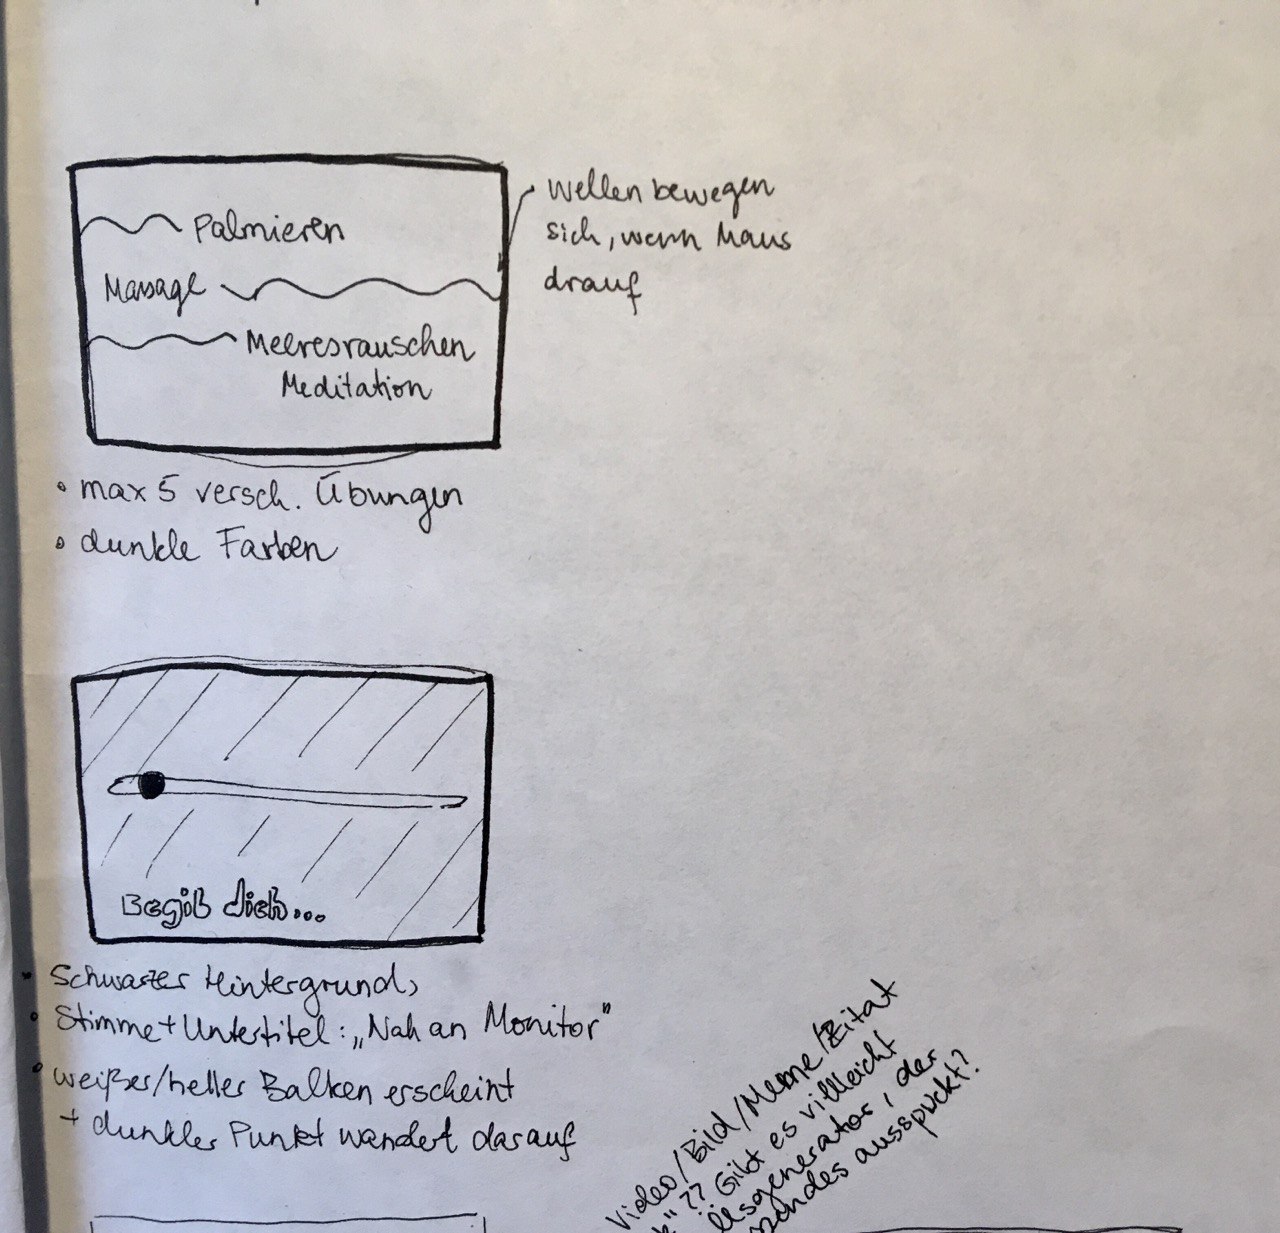 Palmieren
Massage
Meeresrauschen
Meditation
Wellen bewegen
sich, wenn Maus
drauf
• max 5 versch. Übungen
• dunkle Farben
Begib dich...
• Schwarzer Hintergrund,
• Stimme + Untertitel: „Nah an Monitor"
• weißer/heller Balken erscheint
+ dunkler Punkt wandert darauf
Video/Bild/Meme/Zitat
"?? Gibt es villeicht
, der
ausspuckt?